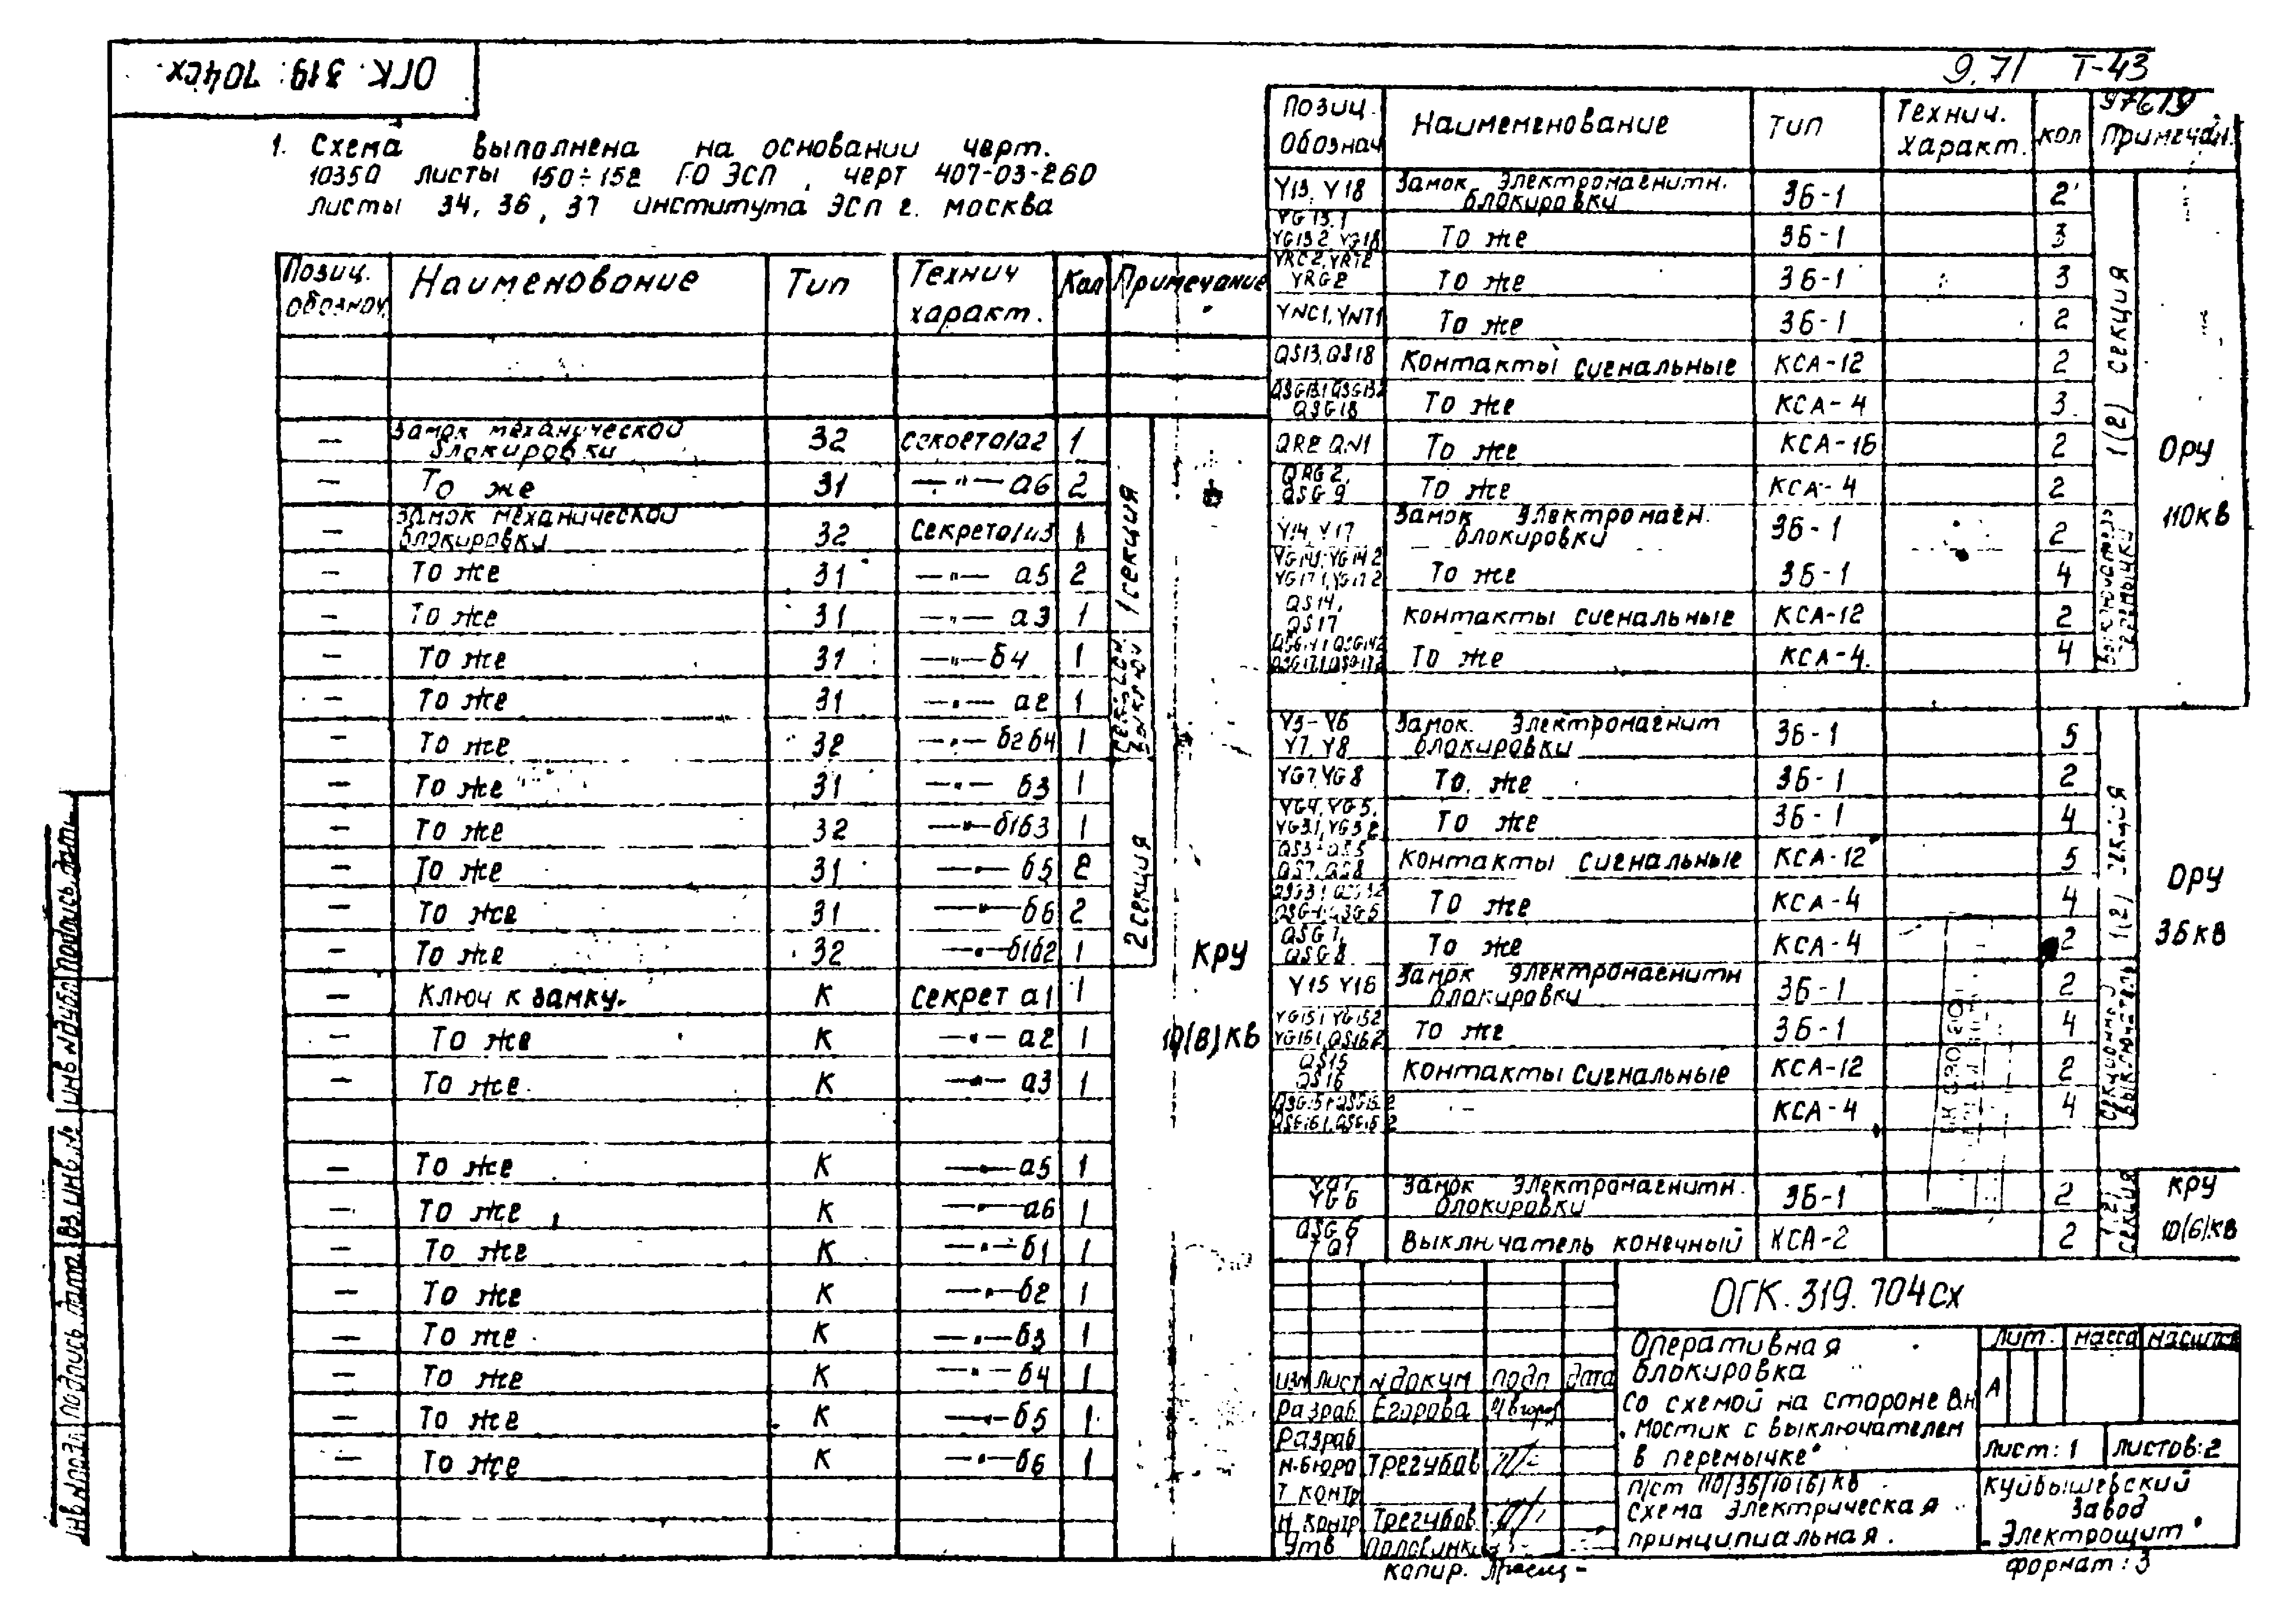 ОГК. 319. 704сх.
9.71 Т-43
97619
1. Схема выполнена на основании черт.
10350 листы 150÷152 ГО ЭСП, черт 407-03-260
листы 34, 36, 37 института ЭСП г. Москва
Позиц. обознач. Наименование Тип Технич характ. Кол Примечание
— Замок механической блокировки 32 Секрет а1а2 1
— То же 31 —"— а6 2
— Замок механической блокировки 32 Секрет а1а3 1
— То же 31 —"— а5 2
— То же 31 —"— а3 1
— То же 31 —"— б4 1
— То же 31 —"— а2 1
— То же 32 —"— б2б4 1
— То же 31 —"— б3 1
— То же 32 —"— б1б3 1
— То же 31 —"— б5 2
— То же 31 —"— б6 2
— То же 32 —"— б1б2 1
— Ключ к замку. К Секрет а1 1
— То же К —"— а2 1
— То же К —"— а3 1
— То же К —"— а5 1
— То же К —"— а6 1
— То же К —"— б1 1
— То же К —"— б2 1
— То же К —"— б3 1
— То же К —"— б4 1
— То же К —"— б5 1
— То же К —"— б6 1
1 секция
2 секция
КРУ
Позиц. Обознач Наименование Тип Технич. характ. кол Примечан.
Y13, Y18 Замок электромагнитн. блокировки ЗБ-1 2
YG13.1 YG13.2, YG18 То же ЗБ-1 3
YRC2, YRT2 YRG2 То же ЗБ-1 3
YNC1, YNT1 То же ЗБ-1 2
QS13, QS18 Контакты сигнальные КСА-12 2
QSG13.1 QSG13.2 QSG18 То же КСА-4 3
QR2 QN1 То же КСА-16 2
QRG2, QSG9 То же КСА-4 2
Y14, Y17 Замок электромагн. блокировки ЗБ-1 2
YG14.1, YG14.2 YG17.1, YG17.2 То же ЗБ-1 4
QS14, QS17 контакты сигнальные КСА-12 2
QSG14.1 QSG14.2 QSG17.1, QSG17.2 То же КСА-4. 4
1(2) секция
ОРУ
110кв
Y3-Y6 Y7, Y8 Замок. электромагнит блокировки ЗБ-1 5
YG7, YG8 То же ЗБ-1 2
YG4, YG5, YG3.1, YG3.2 То же ЗБ-1 4
QS3-QS5 QS7, QS8 Контакты сигнальные КСА-12 5
То же КСА-4 4
QSG7, QSG8 То же КСА-4 2
Y15 Y16 Замок электромагнитн блокировки ЗБ-1 2
YG15.1 YG15.2 YG16.1, QS16.2 То же ЗБ-1 4
QS15 QS16 Контакты сигнальные КСА-12 2
QSG15.1 QSG15.2 QSG16.1, QSG16.2 КСА-4 4
1(2) секция
секционный выключатель
ОРУ
35кв
YG6 Замок электромагнитн. блокировки ЗБ-1 2
QSG6 Выключатель конечный КСА-2 2
секция
КРУ
10(6)кв
ОГК.319.704сх
Оперативная блокировка
Со схемой на стороне в.н
"Мостик с выключателем
в перемычке"
п/ст 110/35/10(6)кв
Схема электрическая
принципиальная.
Лит. масса масштаб
А
лист: 1 листов: 2
Куйбышевский
завод
"Электрощит"
изм лист N докум подп дата
Разраб Егорова
Разраб
Н.бюро Трегубов
Т контр
Н контр Трегубов
Утв
копир.
формат: 3
инв N подл подпись дата вз. инв. № инв N дубл подпись дата